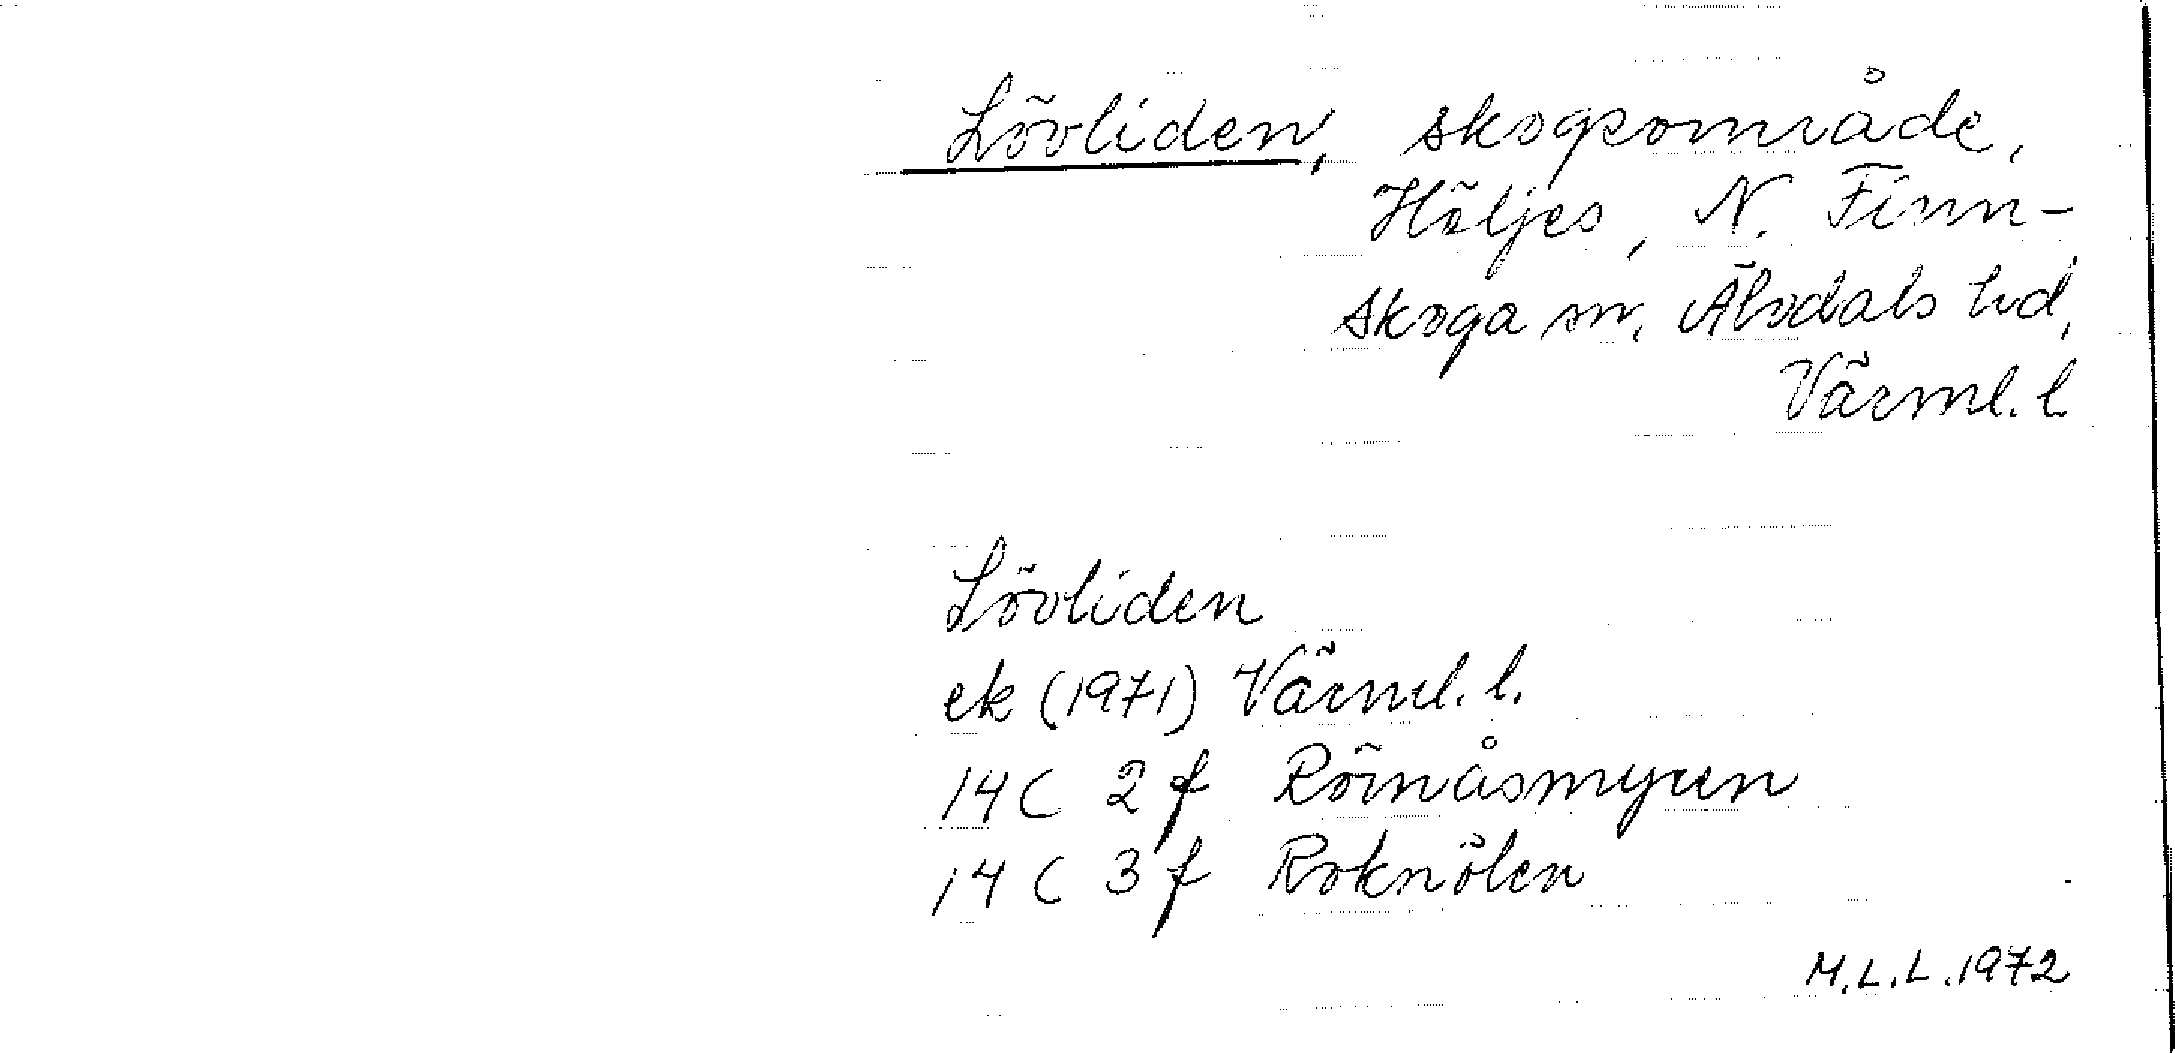 Lövliden, skogsområde,
Höljes, N. Finn-
skoga sn, Älvdals hd,
Värml. l
Lövliden
ek (1971) Värml. l.
14C 2f Römåsmyren
14C 3f Roknölen
M.L.L. 1972